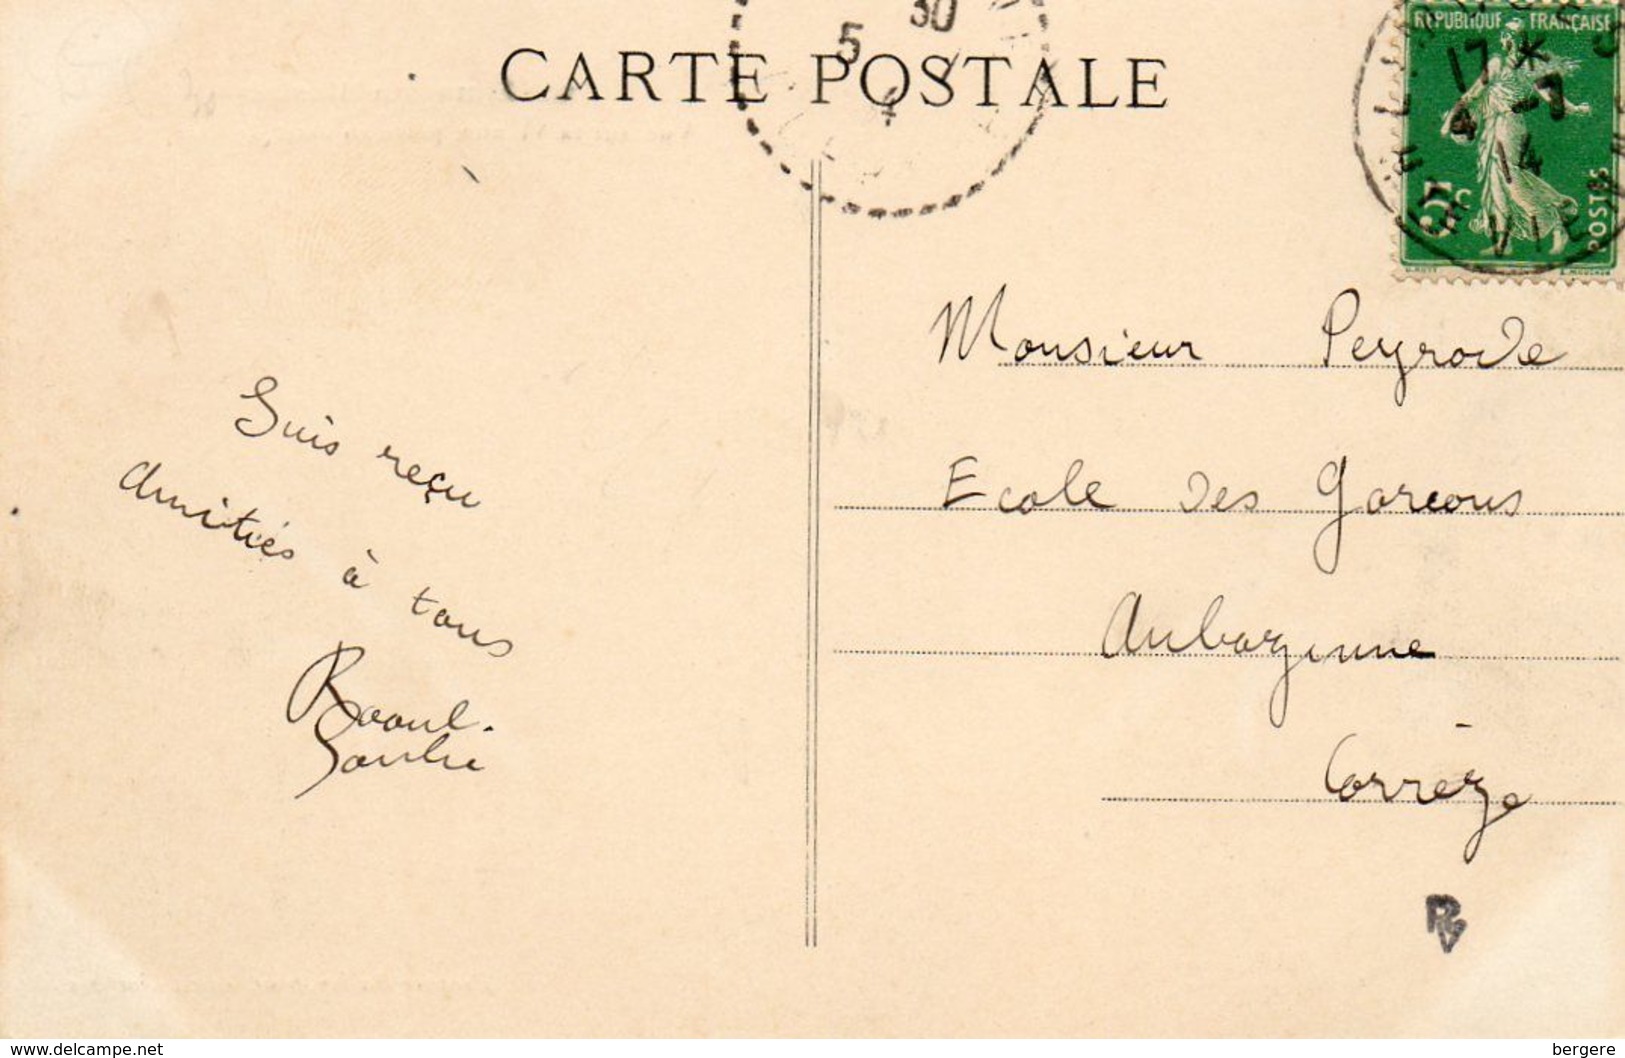 CARTE POSTALE
30
5
4
RÉPUBLIQUE FRANÇAISE
17 *
4 -7
14
5c
POSTES
VIE
Monsieur Peyrode
Ecole des Garcons
Aubazinne
Corrèze
Suis reçu
Amitiés à tous
Raoul.
RV
www.delcampe.net
bergere